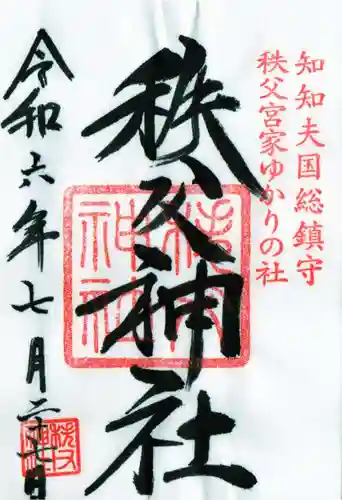 知知夫国総鎮守
秩父宮家ゆかりの社
秩父神社
令和六年七月二十七日